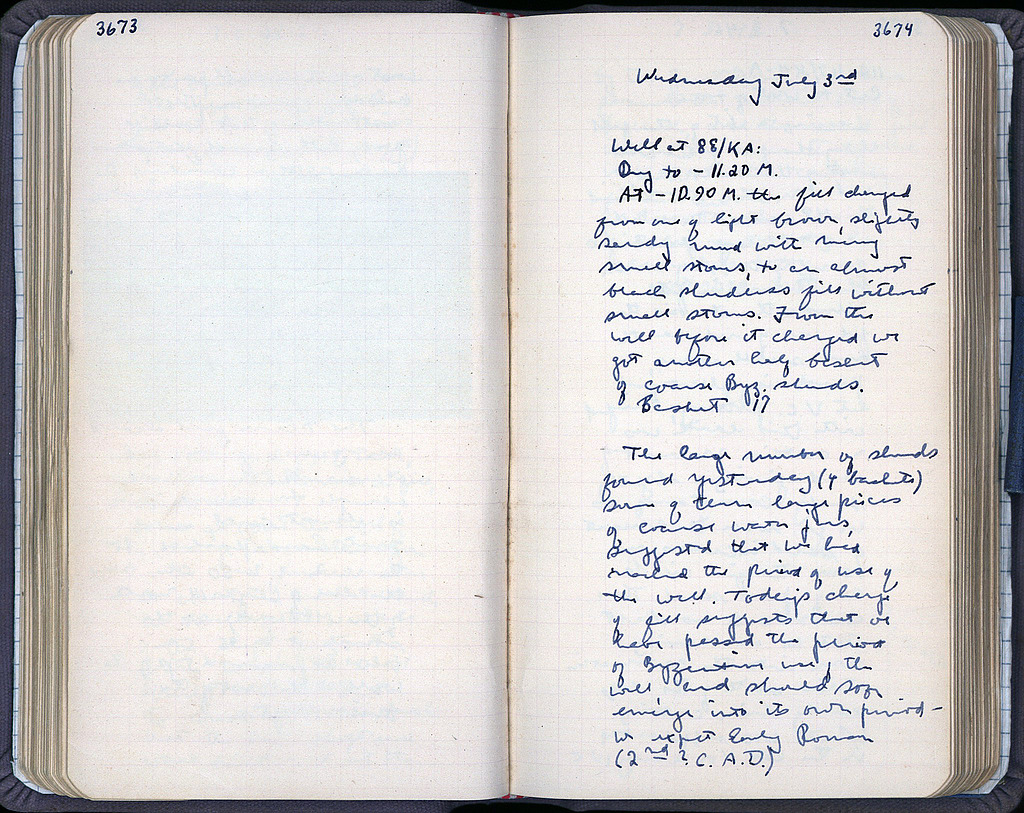 3673
3674
Wednesday July 3rd
Well at 88/KA:
Dug to - 11.20 M.
At - 10.90 M. the fill changed
from one of light brown, slightly
sandy mud with many
small stones, to an almost
black sherdless fill without
small stones. From the
well before it changed we
got another half basket
of coarse Byz. sherds.
Basket 17
The large number of sherds
found yesterday (4 baskets)
some of them large pieces
of coarse water jars,
suggested that we had
reached the period of use of
the well. Today's change
of fill suggests that we
have passed the period
of Byzantine use of the
well and should soon
emerge into its own period -
we expect Early Roman
(2nd ? C. A.D.)